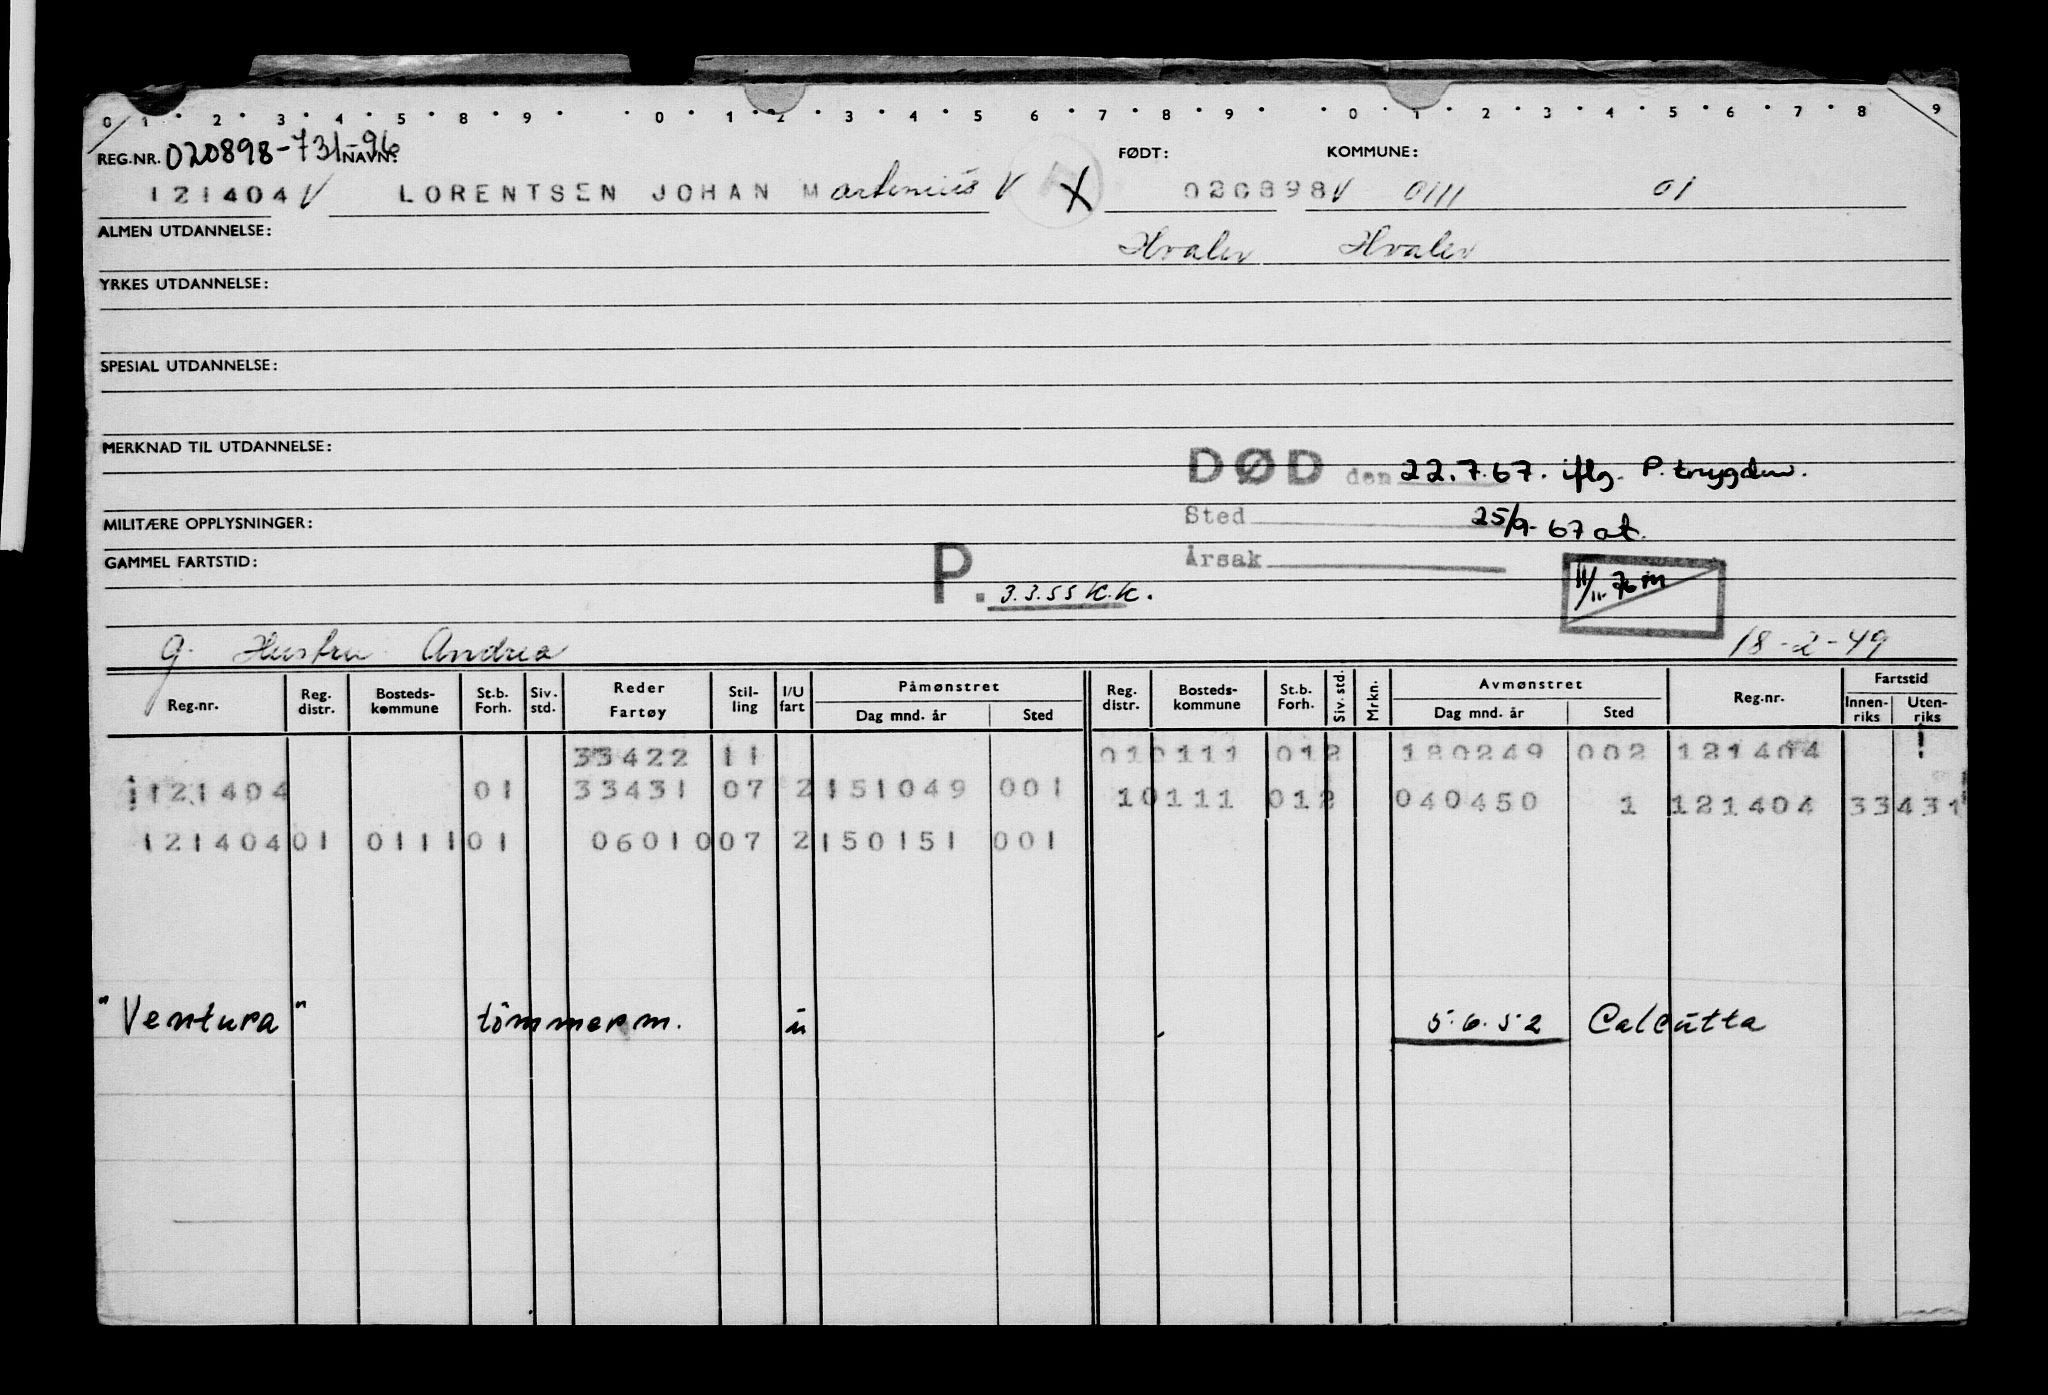 0 1 2 3 4 5 8 9 0 1 2 3 4 5 6 7 8 9 0 1 2 3 4 5 6 7 8 9
REG.NR. 020898-731-96 NAVN: FØDT: KOMMUNE:
121404 V LORENTSEN JOHAN Martinius V X 020898 V 0111 01
ALMEN UTDANNELSE: Hvaler Hvaler
YRKES UTDANNELSE:
SPESIAL UTDANNELSE:
MERKNAD TIL UTDANNELSE:
DØD den 22.7.67. iflg. P. trygden.
MILITÆRE OPPLYSNINGER: Sted 25/9-67 at.
GAMMEL FARTSTID: Årsak
P. 3.3.55 K.K. 11/11.76 m
g. Hustru Andrea 18-2-49
Reg.nr. Reg. distr. Bosteds-kommune St.b. Forh. Siv. std. Reder Fartøy Stil-ling I/U fart Påmønstret Dag mnd. år Sted Reg. distr. Bosteds-kommune St.b. Forh. Siv. std. Mrkn. Avmønstret Dag mnd. år Sted Reg.nr. Fartstid Innen-riks Uten-riks
33422 11 010111 012 180249 002 121404 !
121404 01 33431 07 2 151049 001 10111 012 040450 1 121404 33431
121404 01 0111 01 06010 07 2 150151 001
"Ventura" tömmerm. u 5.6.52 Calcutta